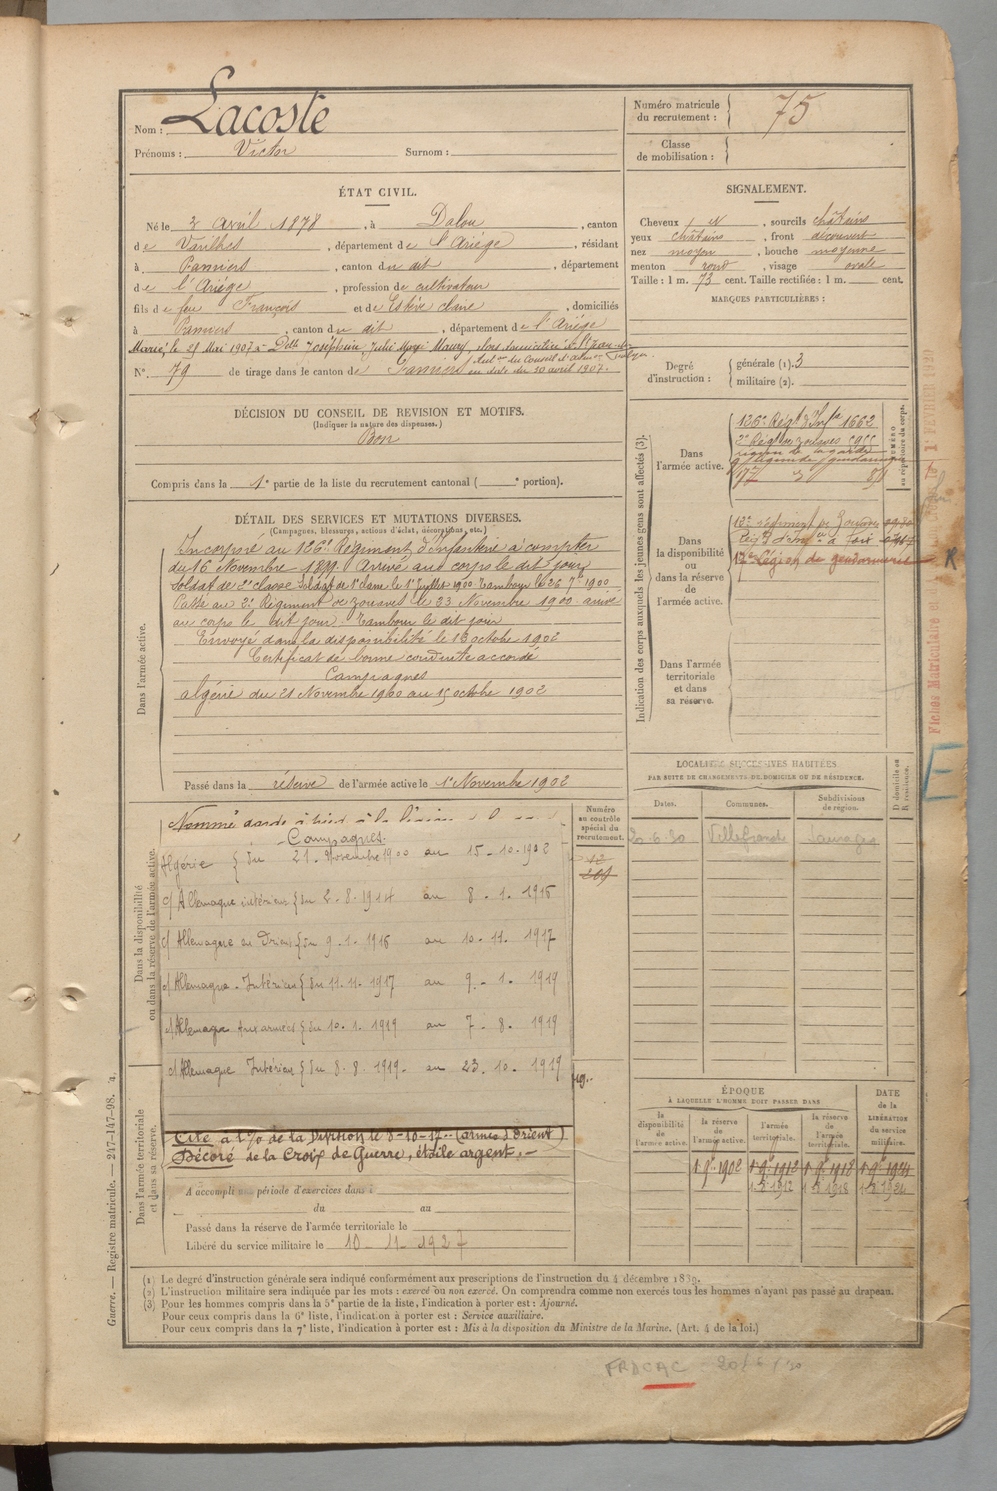 Nom : Lacoste
Prénoms : Victor Surnom :
Numéro matricule du recrutement : 75
Classe de mobilisation :
ÉTAT CIVIL.
Né le 2 Avril 1878, à Dalou, canton
de Varilhes, département de l'Ariége, résidant
à Pamiers, canton du dit, département
de l'Ariége, profession de cultivateur
fils de feu François et de Estève Claire, domiciliés
à Pamiers, canton du dit, département de l'Ariége
Marié, le 28 Mai 1907 à Delle Joséphine Julie Marie Maury
en date du 30 avril 1907.
N° 79 de tirage dans le canton de Pamiers
SIGNALEMENT.
Cheveux N, sourcils châtains
yeux châtains, front découvert
nez moyen, bouche moyenne
menton rond, visage ovale
Taille : 1 m. 73 cent. Taille rectifiée : 1 m. cent.
MARQUES PARTICULIÈRES :
Degré d'instruction : générale (1). 3
militaire (2).
DÉCISION DU CONSEIL DE REVISION ET MOTIFS.
(Indiquer la nature des dispenses.)
Bon
Compris dans la 1e partie de la liste du recrutement cantonal ( e portion).
DÉTAIL DES SERVICES ET MUTATIONS DIVERSES.
(Campagnes, blessures, actions d'éclat, décorations, etc.)
Dans l'armée active.
Incorporé au 126e Régiment d'Infanterie à compter
du 16 Novembre 1899. Arrivé au corps le dit jour
Soldat de 2e classe Soldat de 1e classe le 1er Juillet 1900 Tambour le 26 7bre 1900
Passé au 2e Régiment de zouaves le 23 Novembre 1900 arrivé
au corps le dit jour. Tambour le dit jour
Envoyé dans la disponibilité le 15 octobre 1902
Certificat de bonne conduite accordé
Campagnes
Algérie du 21 Novembre 1900 au 15 octobre 1902
Passé dans la réserve de l'armée active le 1er Novembre 1902
Indication des corps auxquels les jeunes gens sont affectés (3).
Dans l'armée active.
126e Régt d'Infie 1662
2e Rég de zouaves
NUMÉRO au répertoire du corps.
Dans la disponibilité ou dans la réserve de l'armée active.
Légion de gendarmerie
Dans l'armée territoriale et dans sa réserve.
LOCALITÉS SUCCESSIVES HABITÉES
PAR SUITE DE CHANGEMENTS DE DOMICILE OU DE RÉSIDENCE.
Dates. Communes. Subdivisions de région. D domicile ou R résidence.
20-6-30 Villefranche
Dans la disponibilité ou dans la réserve de l'armée active.
Numéro au contrôle spécial du recrutement.
Nommé garde à pied à la
Campagnes
Algérie { du 21. Novembre 1900 au 15-10-1902
c/ Allemagne intérieur { du 2.8.1914 au 8.1.1916
c/ Allemagne en Orient { du 9.1.1916 au 10.11.1917
c/ Allemagne Intérieur { du 11.11.1917 au 9.1.1919
c/ Allemagne aux armées { du 10.1.1919 au 7.8.1919
c/ Allemagne Intérieur { du 8.8.1919 au 23.10.1919
Dans l'armée territoriale et dans sa réserve.
Cité à l'O/ de la Division le 8-10-17 (armée d'Orient)
Décoré de la Croix de Guerre, étoile argent.
A accompli une période d'exercices dans l
du au
Passé dans la réserve de l'armée territoriale le
Libéré du service militaire le 10-11-1927
ÉPOQUE À LAQUELLE L'HOMME DOIT PASSER DANS
la disponibilité de l'armée active. la réserve de l'armée active. l'armée territoriale. la réserve de l'armée territoriale. DATE de la LIBÉRATION du service militaire.
1 9bre 1902 1 9bre 1912 1 9bre 1918 1 9bre 1924
(1) Le degré d'instruction générale sera indiqué conformément aux prescriptions de l'instruction du 4 décembre 1889.
(2) L'instruction militaire sera indiquée par les mots : exercé ou non exercé. On comprendra comme non exercés tous les hommes n'ayant pas passé au drapeau.
(3) Pour les hommes compris dans la 5e partie de la liste, l'indication à porter est : Ajourné.
Pour ceux compris dans la 6e liste, l'indication à porter est : Service auxiliaire.
Pour ceux compris dans la 7e liste, l'indication à porter est : Mis à la disposition du Ministre de la Marine. (Art. 4 de la loi.)
Guerre. — Registre matricule. — 247-147-98.
E
R